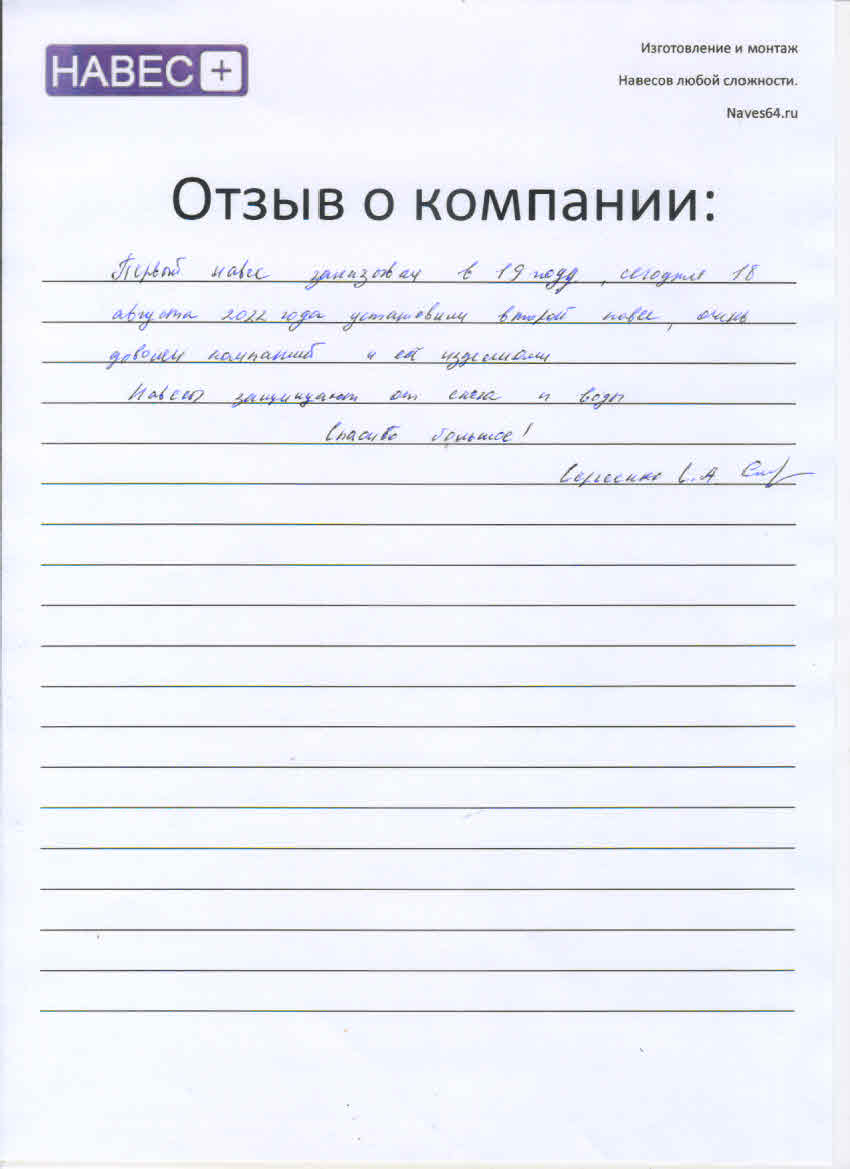 НАВЕС +
Изготовление и монтаж
Навесов любой сложности.
Naves64.ru
Отзыв о компании:
Первый навес заказывал в 19 году, сегодня 18
августа 2022 года установили второй навес, очень
доволен компанией и её изделиями
Навесы защищают от снега и воды
Спасибо большое!
С.А.